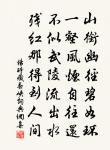 山銜幽徑碧如環
一壑風煙自往還
不似武陵流出去
殘紅那得到人間